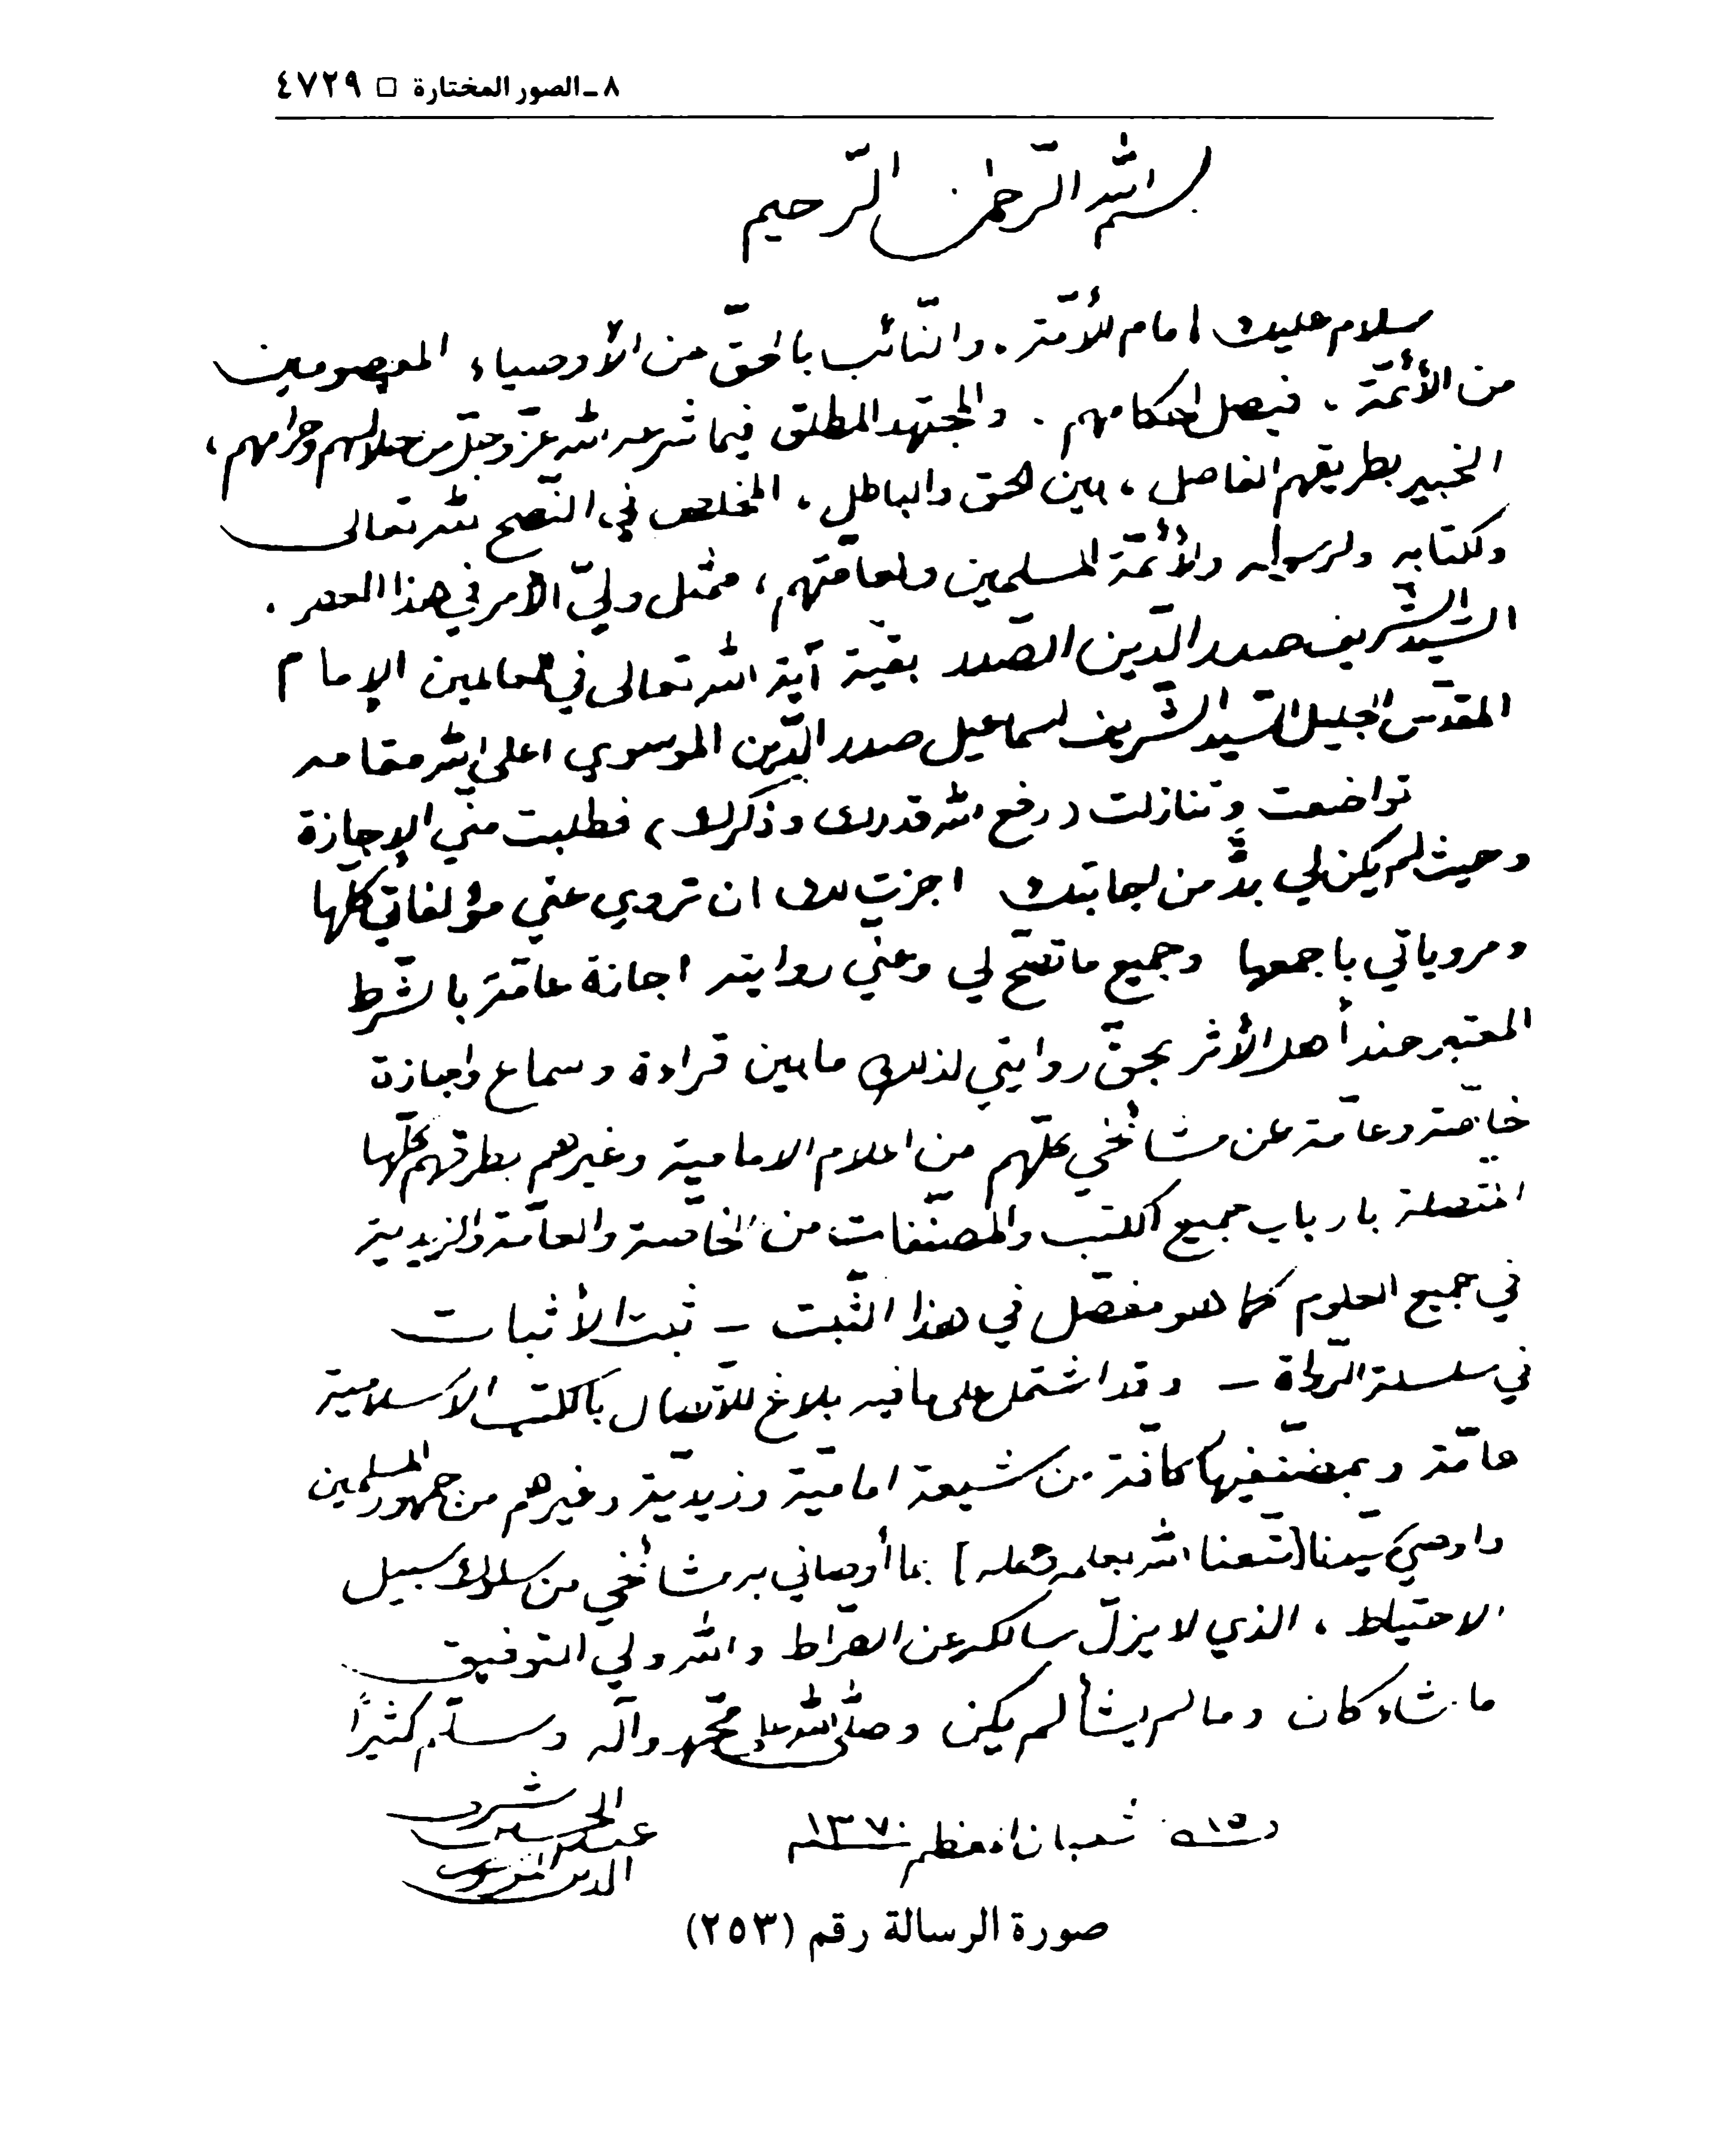 ٨ ـ الصور المختارة □ ٤٧٢٩
بسم الله الرحمن الرحيم
سلام عليك امام للأمّة . والنّائب بالحقّ من الأوصياء المعصومين
من الأئمّة ، فيصل احكامهم . والمجتهد المطلق فيما شرعه الله عزّ وجلّ من حلالهم وحرامهم ،
الخبير بطريقهم الفاصل ، بين الحق والباطل ، المخلص في النّصح لله تعالى
ولكتابه ولرسوله ولأئمّة المسلمين ولعامّتهم ، ممثل وليّ الأمر في هذا العصر .
السّيد الشّريف صدر الدّين الصّدر بقيّة آية الله تعالى في العالمين الإمام
المقدّس الجليل السّيد الشّريف اسماعيل صدر الدّين الموسوي اعلى الله مقامه
تواضعت وتنازلت ( رفع الله قدرك وذكرك ) فطلبت منّي الإجازة
وحيث لم يكن لي بدٌّ من اجابتك اجزت لك ان تروي عنّي مؤلفاتي كلّها
ومروياتي باجمعها وجميع ما تصحّ لي وعنّي روايته اجازة عامّة بالشّرط
المعتبر عند أهل الأثر بحقّ روايتي لذلك ما بين قراءة وسماع واجازة
خاصّة وعامّة عن مشائخي كلّهم من اعلام الامامية وغيرهم بطرقهم كلّها
المتصلة بارباب جميع الكتب والمصنّفات من الخاصّة والعامّة والزيدية
في جميع العلوم كما هو مفصّل في هذا الثّبت – ثبت الأثبات
في سلسلة الرّواة – وقد اشتمل على ما فيه بلاغ للاتّصال بالكتب الاسلامية
عامّة وبمصنّفيها كافّة من شيعة اماميّة وزيديّة وغيرهم من جمهور المسلمين
واوصي سيّدنا [متّعنا الله بعلمه وعمله] بما أوصاني به مشائخي من سلوك سبيل
الاحتياط ، الذي لا يزلّ سالكه عن الصّراط والله وليّ التوفيق
ما شاء كان وما لم يشأ لم يكن وصلّى الله على محمّد وآله وسلّم كثيراً
في ١٥ شعبان المعظم ١٣٧٠
عبد الحسين شرف
الدين الموسوي
صورة الرسالة رقم (٢٥٣)